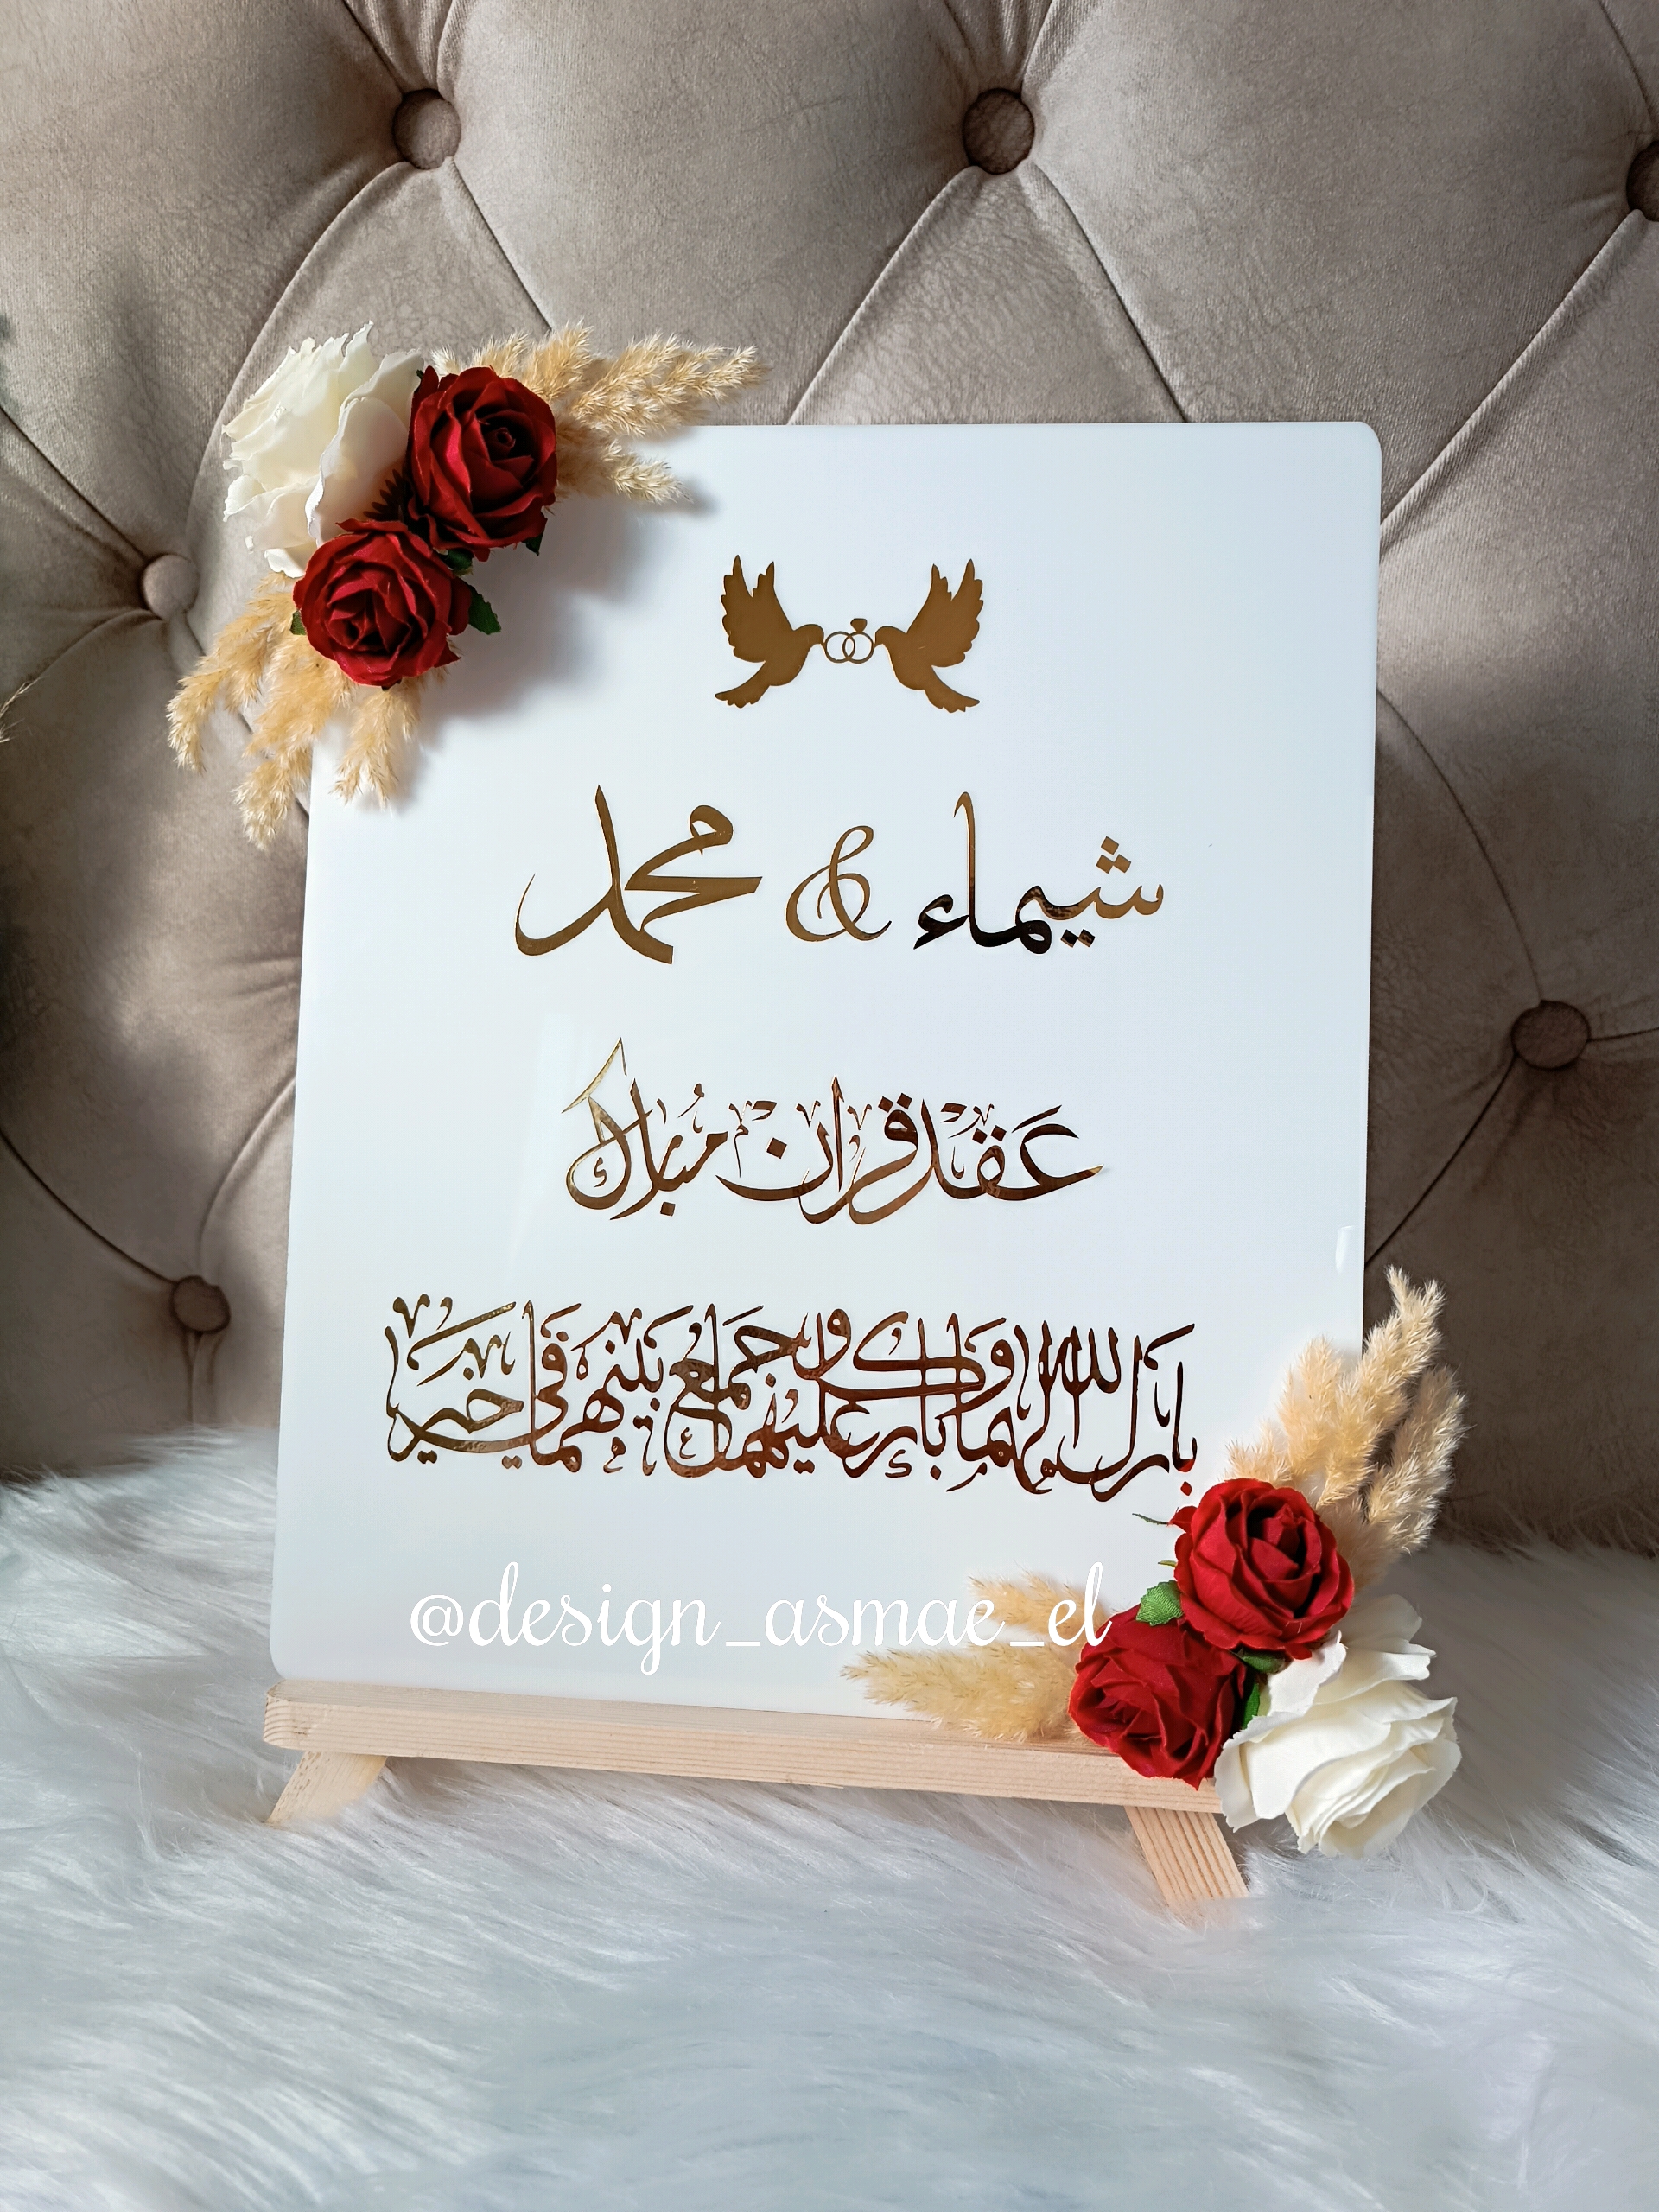 شيماء & محمد
عَقْد قِرَانْ مُبَارَك
بَارَكَ اللهُ لَهُمَا وَبَارَكَ عَلَيْهِمَا وَجَمَعَ بَيْنَهُمَا فِي خَيْرٍ
@design_asmae_el